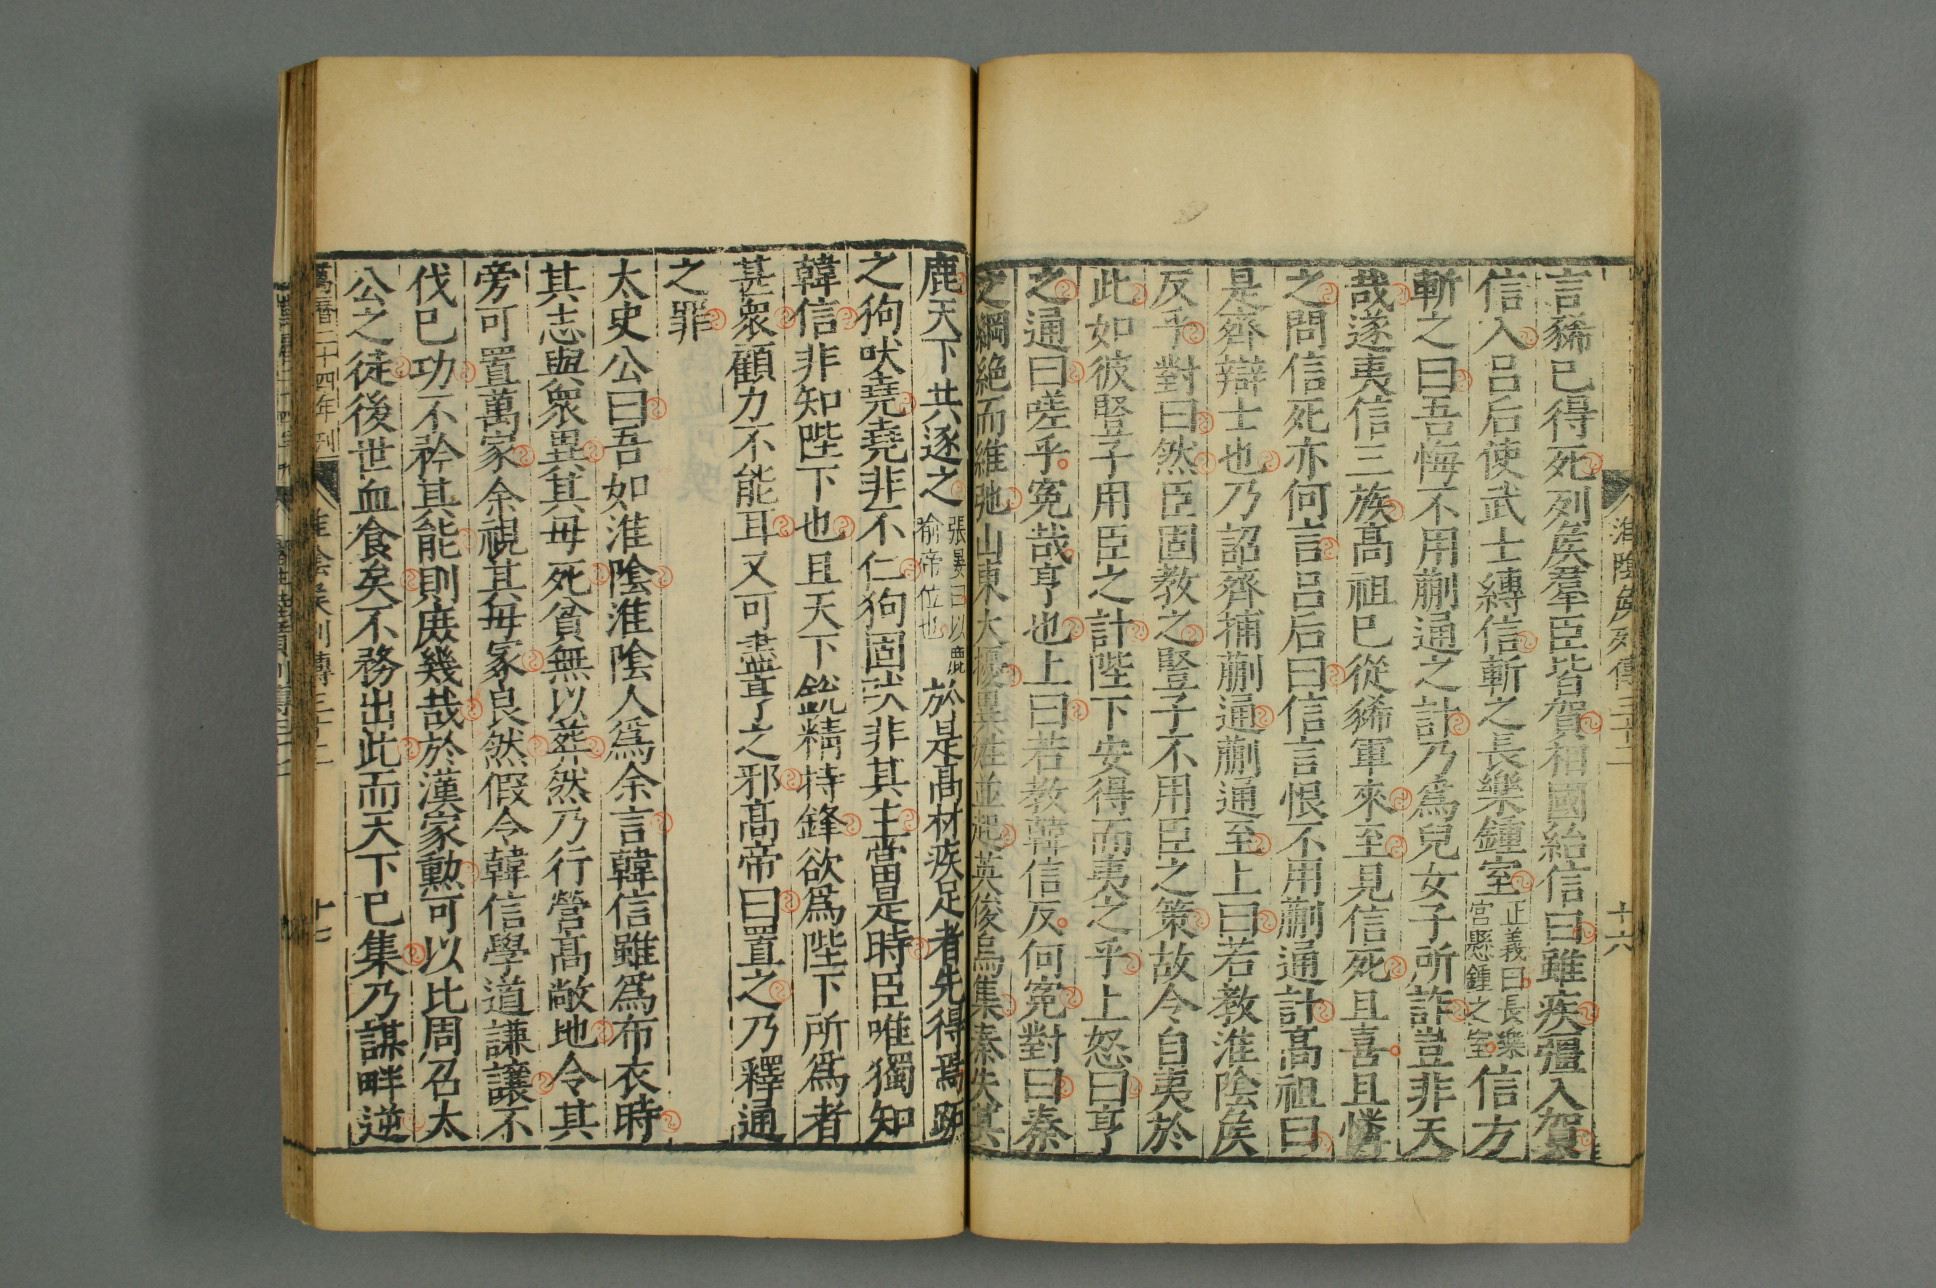 淮陰矦列傳三十二
十六
言豨已得死列矦羣臣皆賀相國紿信曰雖疾彊入賀
信入呂后使武士縛信斬之長樂鍾室正義曰長樂宮懸鍾之室信方
斬之曰吾悔不用蒯通之計乃爲兒女子所詐豈非天
哉遂夷信三族高祖已從豨軍來至見信死且喜且憐
之問信死亦何言呂后曰信言恨不用蒯通計高祖曰
是齊辯士也乃詔齊捕蒯通蒯通至上曰若教淮陰矦
反乎對曰然臣固教之豎子不用臣之策故令自夷於
此如彼豎子用臣之計陛下安得而夷之乎上怒曰亨
之通曰嗟乎冤哉亨也上曰若教韓信反何冤對曰秦
之綱絶而維弛山東大擾異姓並起英俊烏集秦失其
鹿天下共逐之張晏曰以鹿喻帝位也於是高材疾足者先得焉跖
之狗吠堯堯非不仁狗固吠非其主當是時臣唯獨知
韓信非知陛下也且天下銳精持鋒欲爲陛下所爲者
甚衆顧力不能耳又可盡亨之邪高帝曰置之乃釋通
之罪
太史公曰吾如淮陰淮陰人爲余言韓信雖爲布衣時
其志與衆異其母死貧無以葬然乃行營高敞地令其
旁可置萬家余視其母冢良然假令韓信學道謙讓不
伐已功不矜其能則庶幾哉於漢家勲可以比周召太
公之徒後世血食矣不務出此而天下已集乃謀畔逆
萬曆二十四年刊
淮陰矦列傳三十二
十七